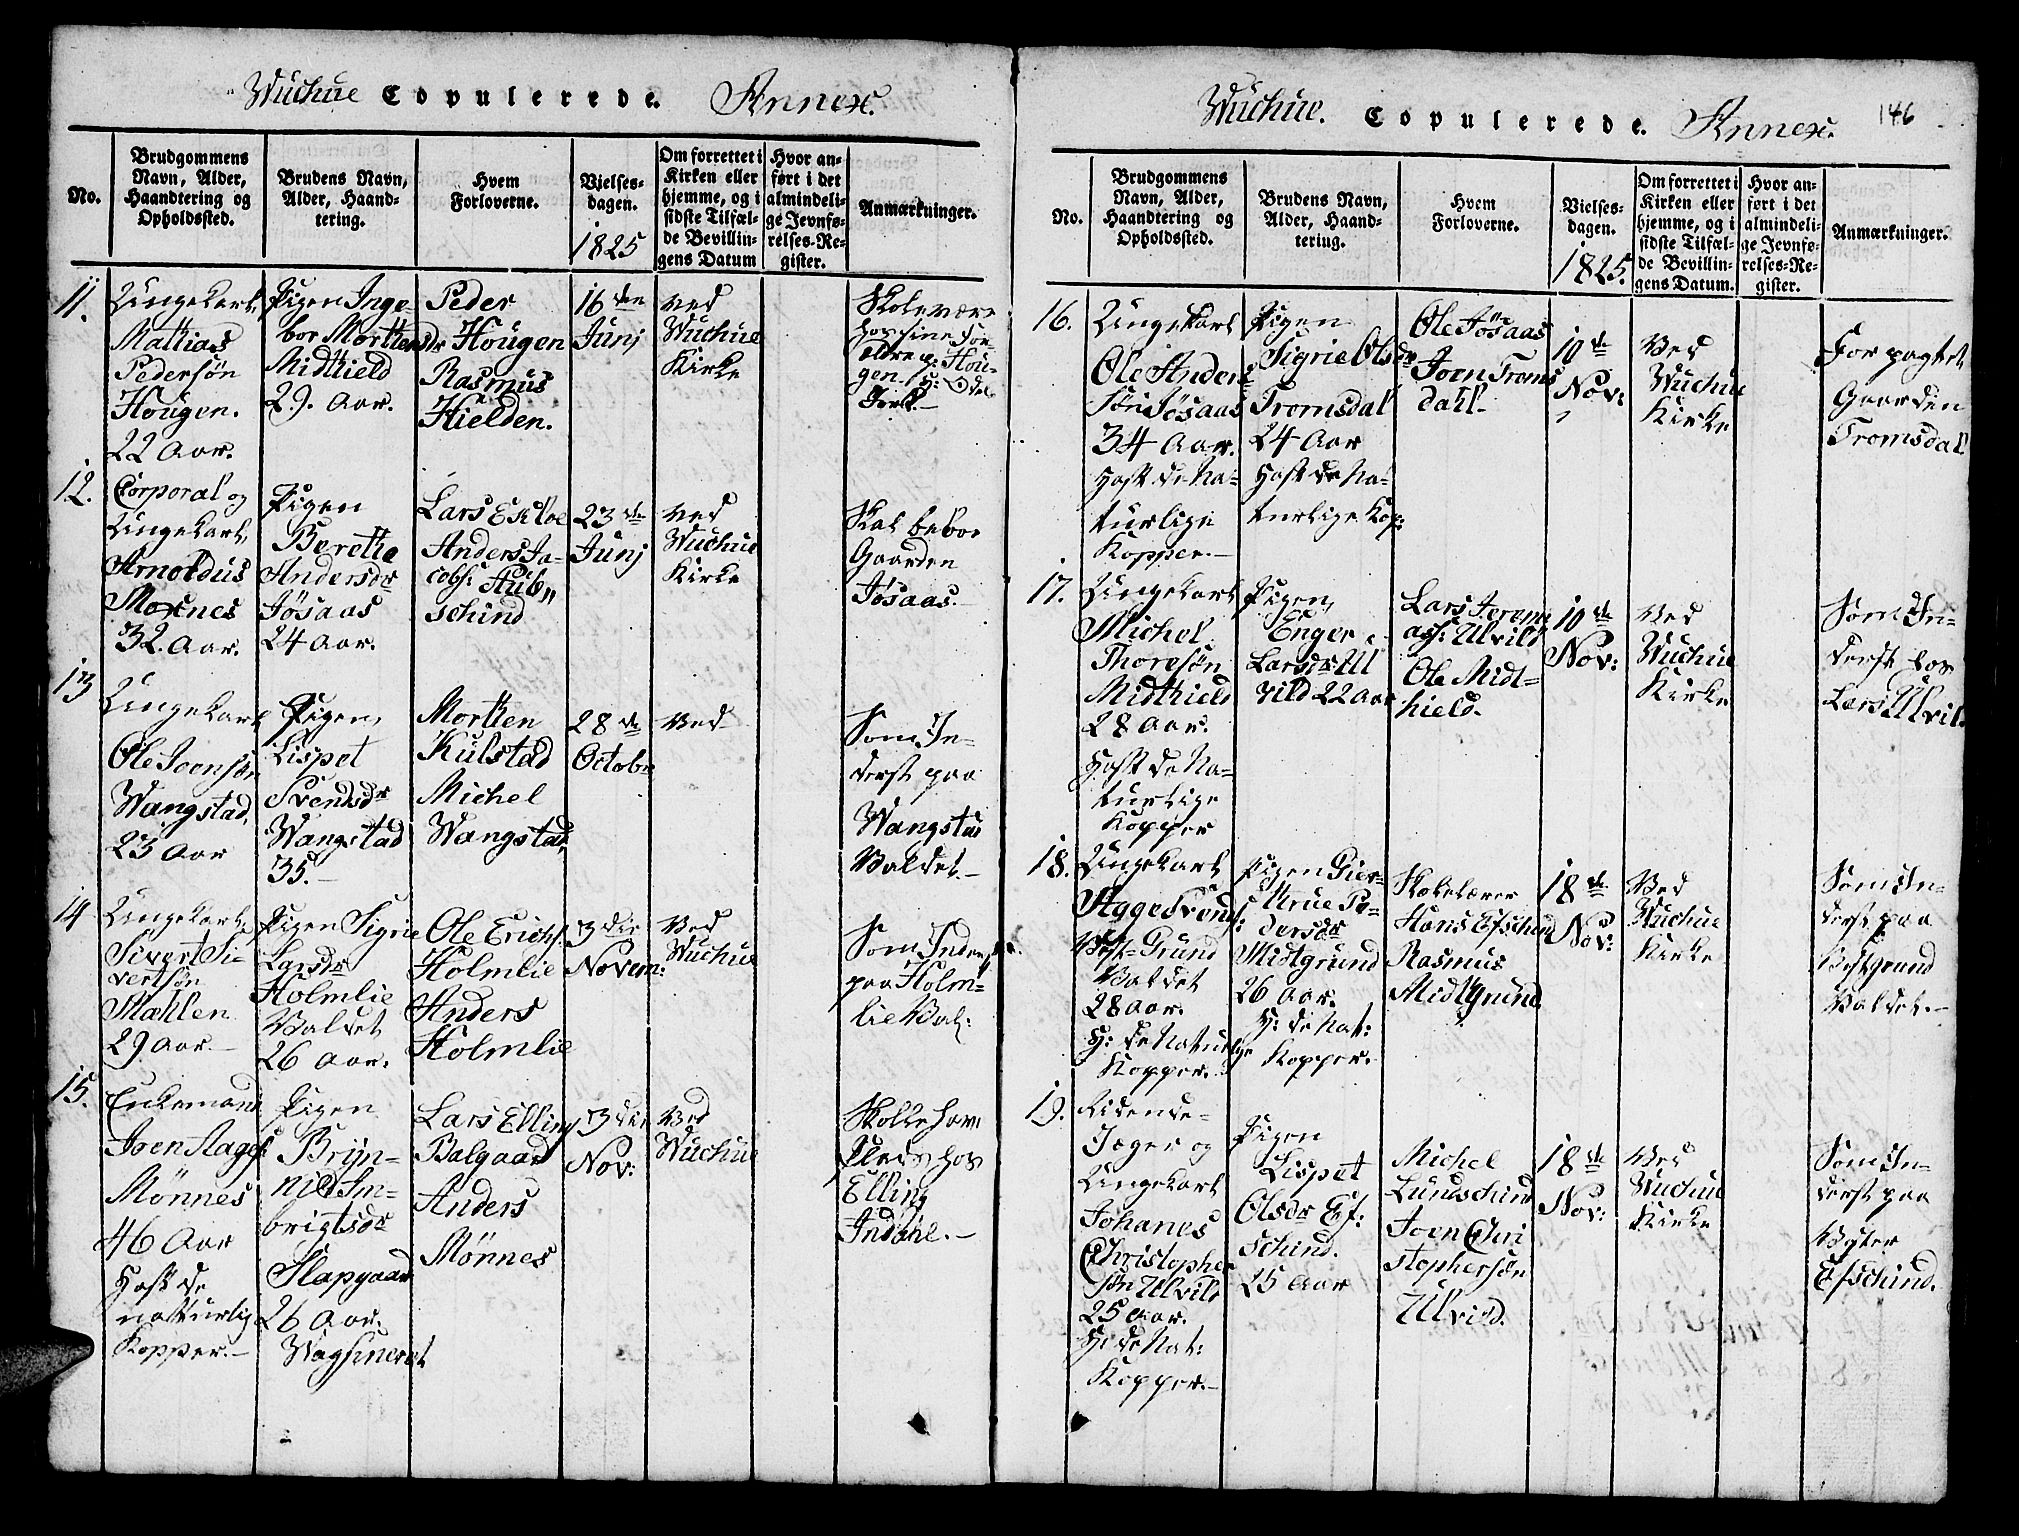 Wuchue Copulerede. Annex.
No.
Brudgommens
Navn, Alder,
Haandtering og
Opholdssted.
Brudens Navn,
Alder, Haand-
tering.
Hvem
Forloverne.
Vielses-
dagen.
1825
Om forrettet i
Kirken eller
hjemme, og i
sidste Tilfæl-
de Bevillin-
gens Datum
Hvor an-
ført i det
almindeli-
ge Jevnfø-
relses-Re-
gister.
Anmærkninger.
11.
Ungekarl,
Mathias
Pedersøn
Hougen.
22 Aar.
Pigen Inge-
bor Morttensdr
Midthield
29. Aar.
Peder
Hougen
Rasmus
Hielden.
16 den
Junj
ved
Wuchue
Kirke
Skole være
hos sine For-
ældre p: Hou-
gen
12.
Corporal og
Ungekarl,
Arnoldus
Moxnes
32. Aar.
Pigen
Berethe
Andersdr
Jøsaas
24 Aar.
Lars Ekloe
Anders Ja-
cobs: Stub,,
schind
23 de
Junj
ved
Wuchue
Kirke
Skal beboe
Gaarden
Jøsaas.-
13
Ungekarl
Ole Joensøn
Wangstad,
23 Aar
Pigen,
Lispet
Svendsdr
Wangstad
35.-
Mortten
Kulstad
Michel
Wangstad,
28 de
Octobr
Ved
Som In-
derst paa
Wangstad
Valdet.-
14
Ungekarl,
Sivert Si-
vertsøn
Mæhlen
29 Aar.-
Pigen Sigrie
Larsdr
Holmlie
Valdet
26 Aar.
Ole Erichs.
Holmlie
Anders
Holmlie
3 die
Novem:
Ved
Wuchue
Som Inderst
paa Holm-
lie Val:
15.
Enkemand
Joen Aages:
Mønnes
46 Aar
Haft de
natturlig
Kopper.-
Pigen
Bryn-
nild Im-
brigtsdr
Slapgaard
26 Aar.
Wagsineret
Lars Elling
Balgaard
Anders
Mønnes
3 die
Nov:
Ved
Wuchue
Elling
Indahl.-
Wuchue. Copulerede. Annex.
146
No.
Brudgommens
Navn, Alder,
Haandtering og
Opholdssted.
Brudens Navn,
Alder, Haand-
tering.
Hvem
Forloverne.
Vielses-
dagen.
1825.
Om forrettet i
Kirken eller
hjemme, og i
sidste Tilfæl-
de Bevillin-
gens Datum.
Hvor an-
ført i det
almindeli-
ge Jevnfø-
relses-Re-
gister.
Anmærkninger.
16.
Ungekarl
Ole Anders
søn Jøsaas
34 Aar.
Haft de Na-
turlige
Kopper.-
Pigen
Sigrie Olsdr
Tromsdal
24 Aar
Haft de Na-
turlige Kop:
Ole Jøsaas
Joen Troms
dahl-
10 de
Nov:
Ved
Wuchue
Kirke
Forpagtet
Gaarden
Tromsdal
17.
Ungekarl
Michel
Thoresøn
Midthield
28 Aar.
Haft de Na-
turlige
Kopper
Pigen,
Enger
Larsdr Ul
vild 22 Aar
Lars Jerem
ass: Ulvild
Ole Midt-
hield.
10 de
Nov:
Ved
Wuchue
Kirke
Som In-
derst hos
Lars Ulvild
18.
Ungekarl
Aage Svends:
Vest-Grund
Valdet
28 Aar.
H: de Naturlige
Kopper.
Pigen Gier-
true Pe-
dersdr
Midtgrund
26 Aar.
H: de Nat:
Kopper.
Skolelærer
Hans Efschind
Rasmus
Midtgrund
18 de
Nov:
Ved
Wuchue
Kirke
Som In-
derst paa
Vestgrund
Valdet.-
19.
Ridende-
Jæger og
Ungekarl
Johanes
Christopher
søn Ulvild
25 Aar.
H: de Nat:
Kopper.-
Pigen
Lispet
Olsdr Ef:
schind.
25 Aar
Michel
Lundschind
Joen Chri
stophersøn
Ulvild.
18 de
Nov:
Ved
Wuchue
Kirke
Som In-
derst paa
Efschind.